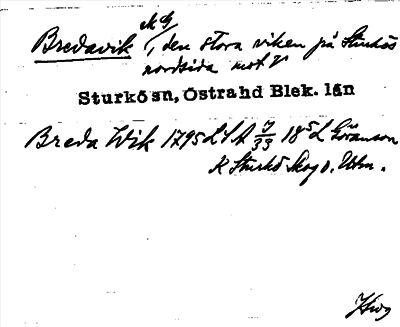 Bredavik, den stora viken på Sturkös
nordsida mot V
Sturkö sn, Östrahd Blek. län
Breda Wik 1795 L 4 A 7/33 18 5 L Göranson
K Sturkö Skog o. Utm.